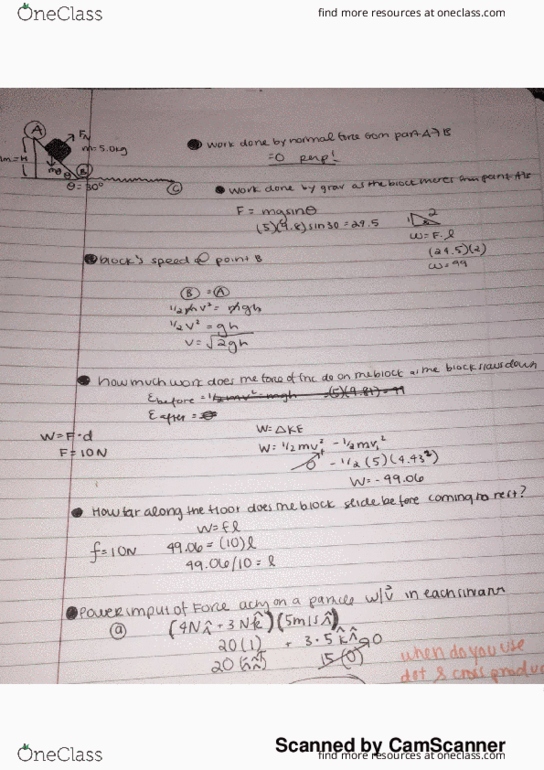 OneClass
find more resources at oneclass.com
A
FN
m=5.0kg
1m=H
mg θ B
θ=30°
C
work done by normal force from part A→B
=0 perp!
work done by grav as the block moves from point A→B
F = mgsinθ
(5)(9.8)sin30 = 24.5
2
W=F·l
(24.5)(2)
W=49
block's speed @ point B
B = A
1/2 mv² = mgh
1/2 v² = gh
v = √2gh
how much work does the force of fric do on the block as the block slows down
Ebefore = 1/2 mv² - mgh
Eafter =
W=F·d
F=10N
W=ΔKE
W= 1/2 mv² - 1/2 mv₁²
0 - 1/2 (5)(4.43²)
W= -49.06
How far along the floor does the block slide before coming to rest?
W=fl
f=10N
49.06 = (10) l
49.06/10 = l
Power input of Force acting on a particle w/ v⃗ in each
a
(4N î + 3N k̂)(5m/s î)
20(1) + 3·5 k̂ î 0
20 15(0)
when do you use
dot & cross produc
Scanned by CamScanner
OneClass
find more resources at oneclass.com